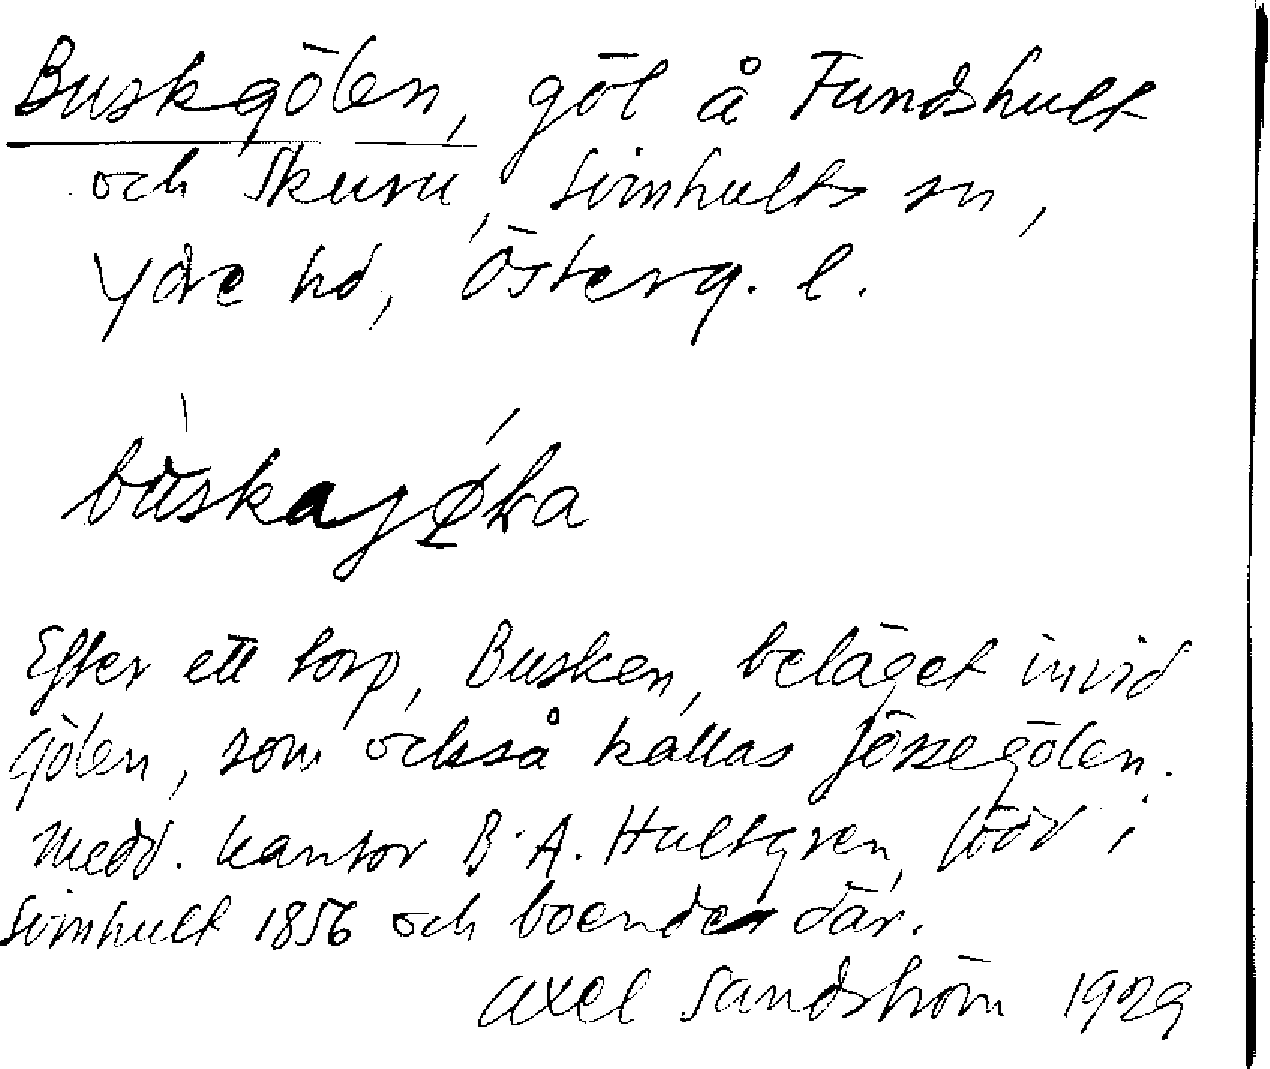 Buskgölen, göl å Fundshult
och Skuru, Svinhults sn,
Ydre hd, Österg. l.
Efter ett torp, Busken, beläget invid
gölen, som också kallas Jössegölen.
Medd. kantor B. A. Hultgren, född i
Svinhult 1856 och boende där.
Axel Sandström 1929